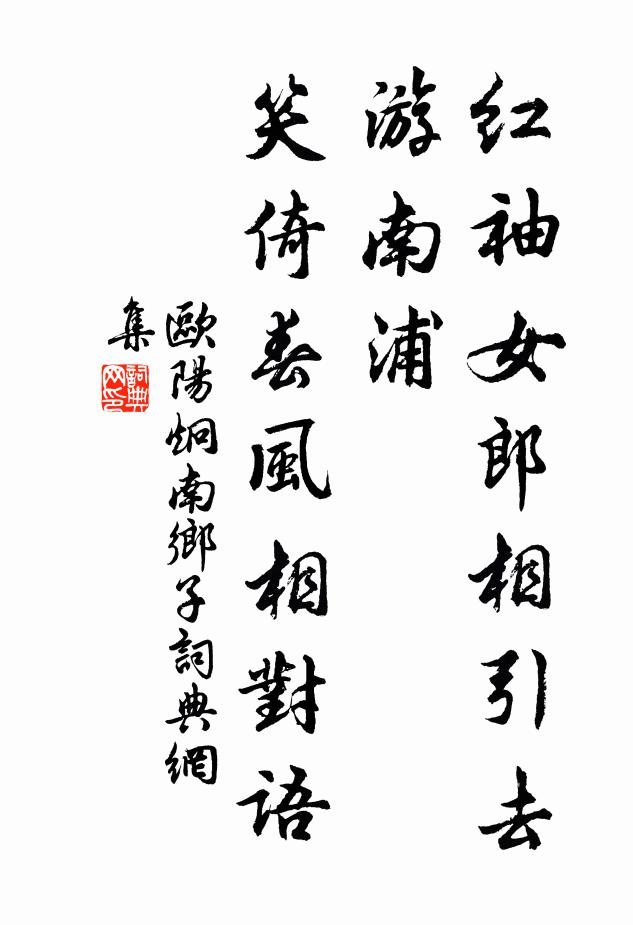 红袖女郎相引去
游南浦
笑倚春風相對語
歐陽炯南鄉子詞典網
集
詞典
网印